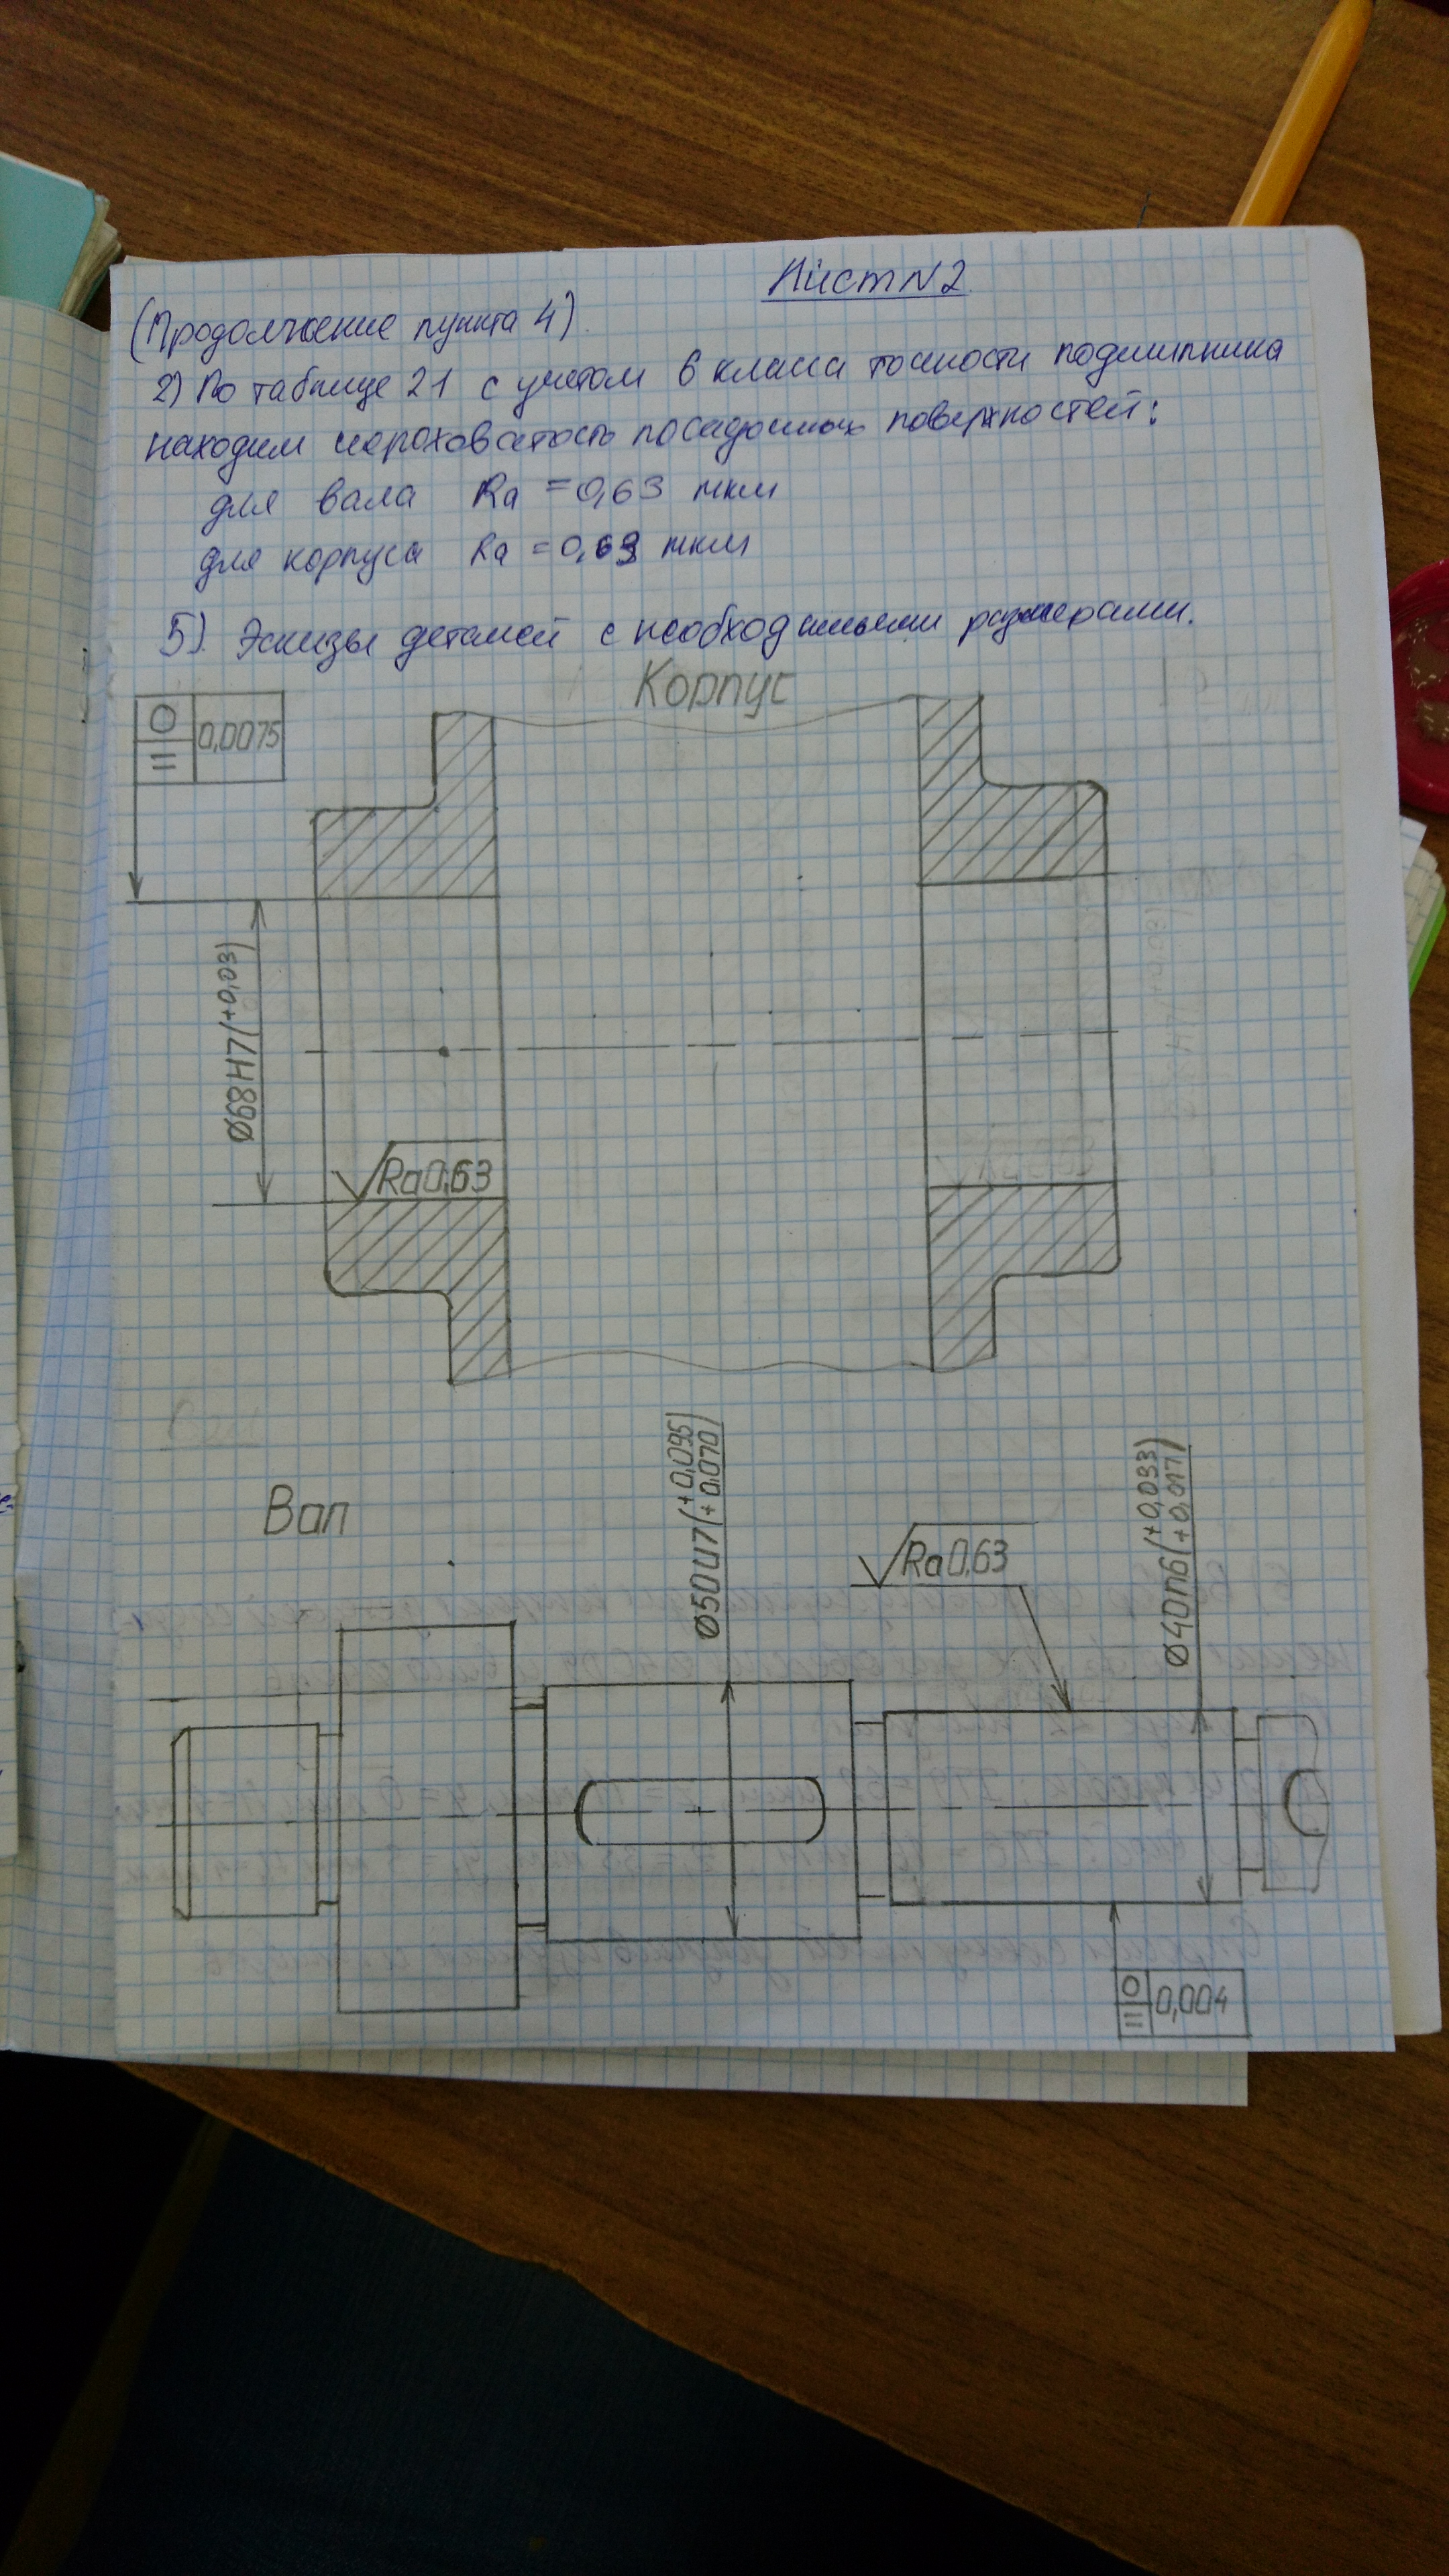 Лист N2
(Продолжение пункта 4)
2) По таблице 21 с учетом 6 класса точности подшипника
находим шероховатость посадочных поверхностей:
для вала Ra = 0,63 мкм
для корпуса Ra = 0,63 мкм
5). Эскизы деталей с необходимыми размерами.
Корпус
0,0075
Ø68H7(+0,03)
Ra0,63
Вал
Ø50u7(+0,095
+0,070)
Ra0,63
Ø40n6(+0,033
+0,017)
0,004